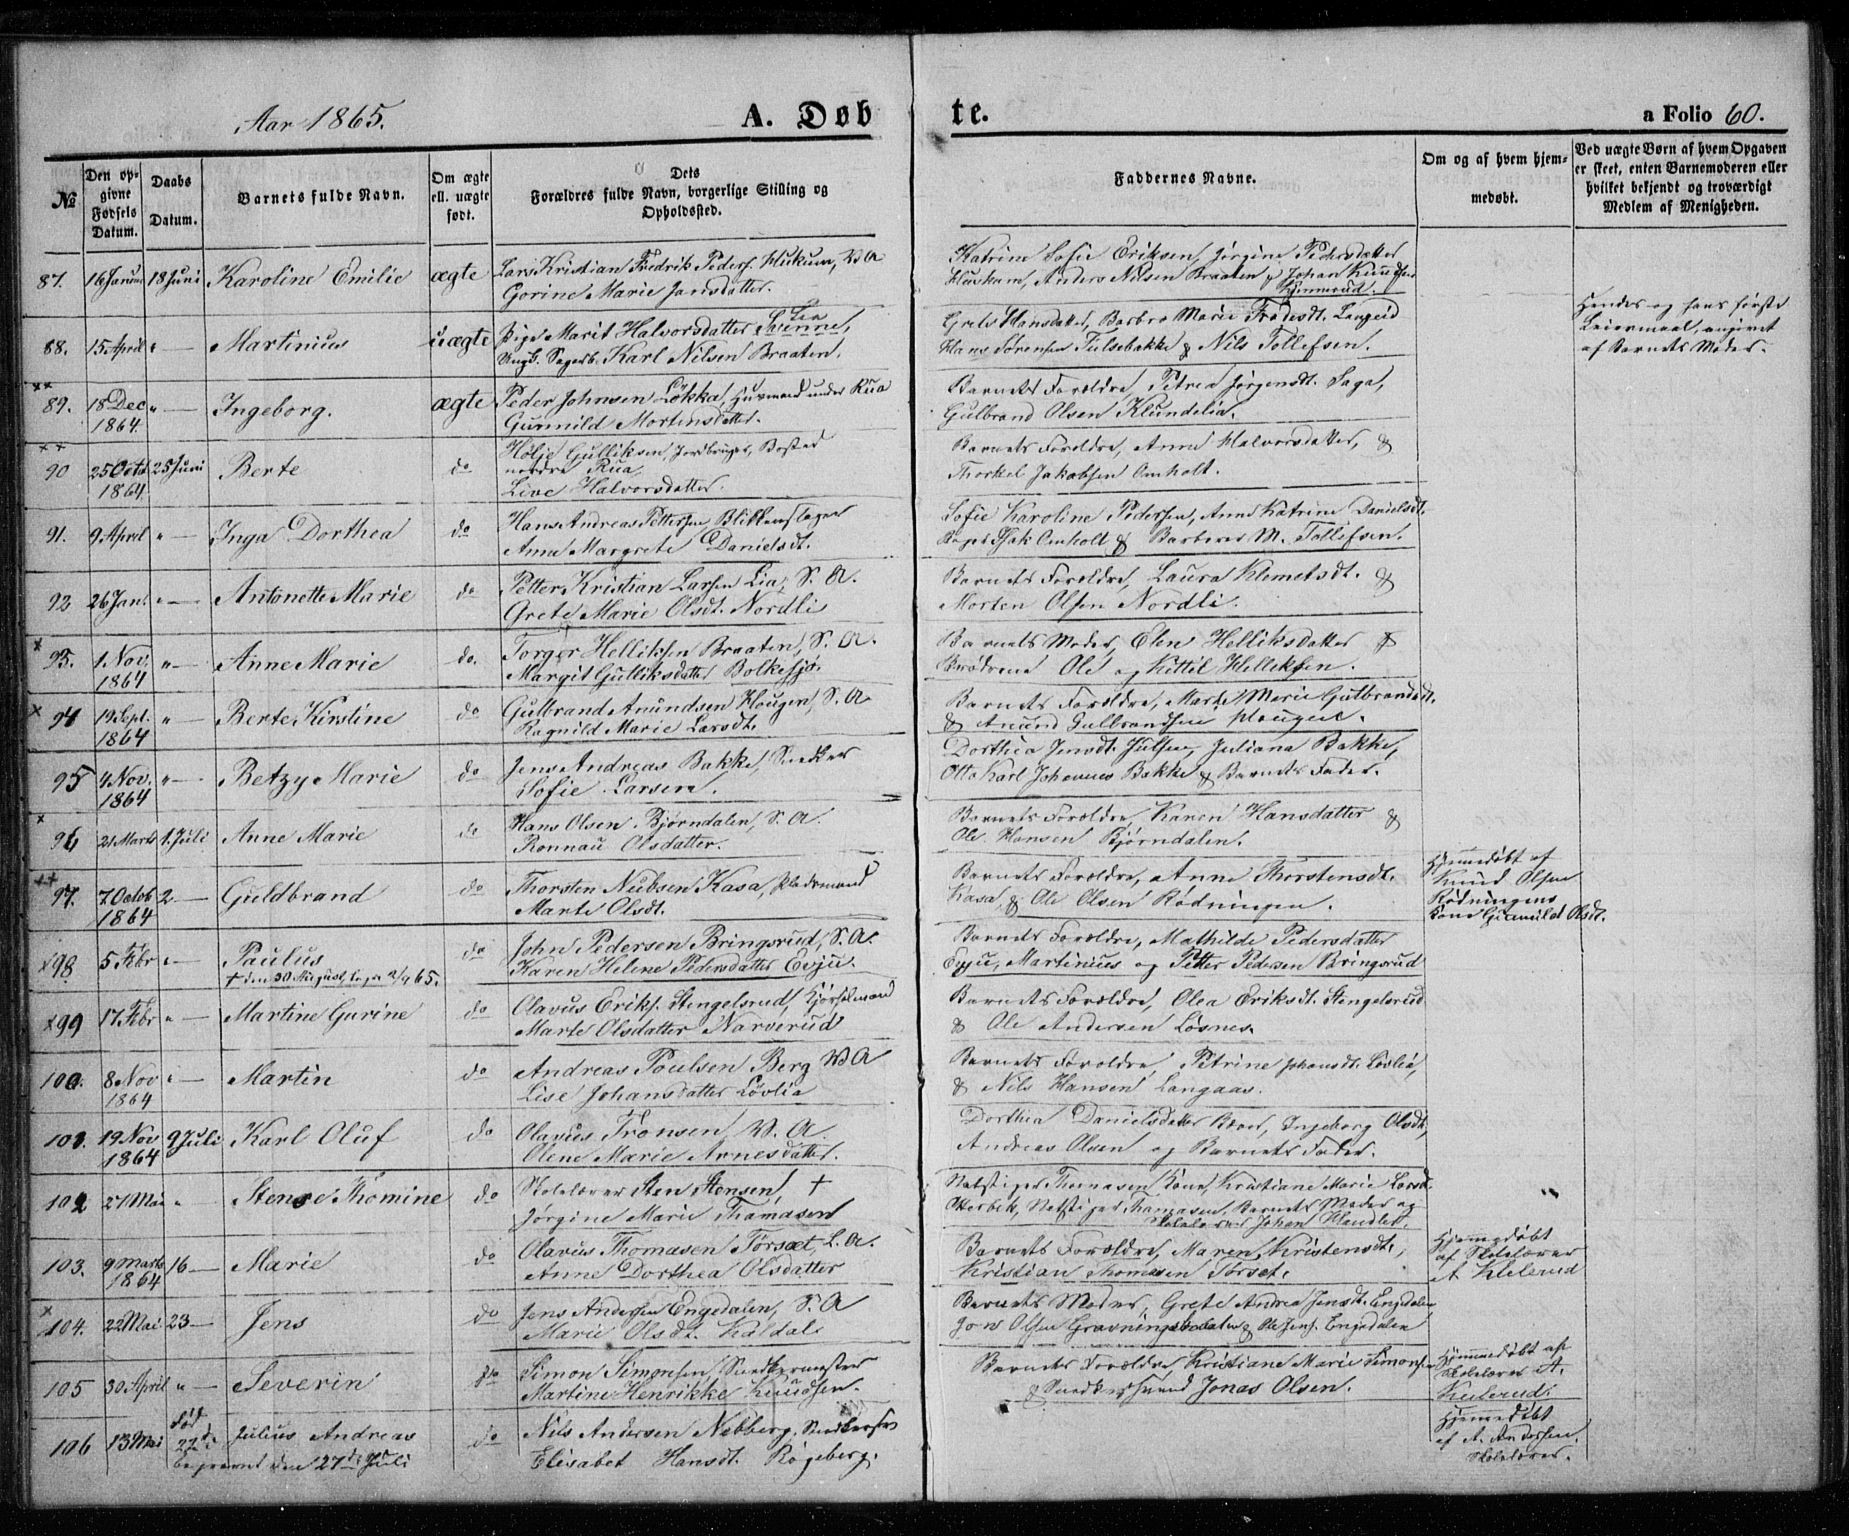 Aar 1865.
A. Døb
te.
a Folio 60.
№
Den op-
givne
Fødsels
Datum.
Daabs
Datum.
Barnets fulde Navn.
Om ægte
ell. uægte
født.
Dets
Forældres fulde Navn, borgerlige Stilling og
Opholdssted.
Faddernes Navne.
Om og af hvem hjem-
medøbt.
Ved uægte Børn af hvem Opgaven
er skeet, enten Barnemoderen eller
hvilket bekjendt og troværdigt
Medlem af Menigheden.
87. 16 Januar 18 Juni Karoline Emilie ægte Lars Kristian Fredrik Peders. V A
Gorine Marie Jansdatter.
Katrine Sofie Eriksen, Jørgine Pedersdatter
Anders Nilsen Braaten & Johan Knudsen
88. 15 April " — Martinius uægte Pige Marit Halvorsdatter Lia
Ungk. Karl Nilsen Braaten.
Grete Hansdatter, Barbro Marie
Hans Sørensen & Nils Tollefsen.
Hendes og hans første
Leiermaal, angivet
af Barnets Moder.
xx
89. 18 Dec " — Ingeborg. ægte Peder Johnsen Løkka, Huusmand under Rua
1864. Gunnild Mortensdatter.
Barnets Forældre, Petrea Jørgensdt. Saga,
Gulbrand Olsen Klundelia.
xx
90 25 Octb 25 Juni Berte do Gulliksen, Jordbruger, Bosted
1864. nordre Rua
Live Halvorsdatter.
Barnets Forældre, Anne Halvorsdatter, &
Thorkel Jakobsen Omholt.
91. 9 April " — Inga Dorthea do Hans Andreas Pettersen Blikkenslager
Anne Margrete Danielsdt.
Sofie Karoline Pedersen, Anne Katrine Danielsdt.
Isak Omholt & M. Tollefsen.
92 26 Jan. " — Antonette Marie do Petter Kristian Larsen Lia, S. A.
Grete Marie Olsdt. Nordli
Barnets Forældre, Laura Klemetsdt. &
Morten Olsen Nordli.
x
93. 1 Nov. " — Anne Marie do. Torger Helliksen Braaten, S. A.
1864 Margit Gulliksdatter Bolkesjø.
Barnets Moder, Elen Helliksdatter &
Brødrene Ole og Kittil Helliksen.
x
94 19 Sept. " — Berte Kirstine do Gulbrand Amundsen Hougen, S. A
1864 Ragnild Marie Larsdt.
Barnets Forældre, Marte Marie Gulbrandsdt.
& Amund Gulbrandsen Hougen.
95 4 Nov. " — Betzy Marie do Jens Andreas Bakke, Snedker
1864 Sofie Larsen.
Dorthea Jensdt. Juliana Bakke,
Otto Karl Johannes Bakke & Barnets Fader.
x
96 21 Marts 1. Juli Anne Marie do Hans Olsen Bjørndalen, S. A.
Ronnau Olsdatter.
Barnets Forældre, Karen Hansdatter &
Ole Hansen Bjørndalen.
97. 7 Octob 2 — Guldbrand do Thorsten Nubsen Kasa, Pladsmand
1864 Marte Olsdt.
Barnets Forældre, Anne Thorstensdt.
Kasa, & Ole Olsen Rødningen.
Hjemedøbt af
Knud Olsen
Rødningens
Kone Gunnild Olsdt.
x98 5 Febr " — Paulus do John Pedersen Bringsrud, S. A.
† den 30 August, 65. Karen Helene Pedersdatter Evju.
Barnets Forældre, Mathilde Pedersdatter
Evju, Martinius og Petter Pedersen Bringsrud
x99 17 Febr " Martine Gurine do Olavus Eriks. Stengelsrud, Kjørselmand
Marte Olsdatter Narverud
Barnets Forældre, Olea Eriksdt. Stengelsrud
& Ole Andersen Løsnes.
100. 8 Nov " — Martin do Andreas Poulsen Berg V A
1864 Lise Johansdatter Løvlia
Barnets Forældre, Petrine Johansdt. Løvlia,
& Nils Hansen Langaas.
101. 19 Nov 9 Juli Karl Oluf do Olavus Tronsen, V. A.
1864 Olene Marie Arnesdatter.
Dorthea Danielsdatter, Ingeborg Olsdt,
Andreas Olsen og Barnets Fader.
102 27 Mai " Stense Thomine do Skolelærer Sten Stensen, †
Jørgine Marie Thomasen
Thomasen Kone, Kristiane Marie Larsdt.
Thomasen, Barnets Moder og
Skolelærer Johan
103. 9 Marts 16 — Marie do Olavus Thomasen Torsæt, L. A.
1864 Anne Dorthea Olsdatter
Barnets Forældre, Maren Kristensdt.,
Kristian Thomasen Torset.
Hjemedøbt
af Skolelærer
A
x
104. 22 Mai 23 — Jens do Jens Andersen Engedalen, S. A
Marie Olsdt. Kaldal
Barnets Moder, Grete Andrea Jensdt. Engedalen
Olsen & Ole Jens. Engedalen
105 30 April " — Severin do Simon Simonsen, Snedkermester
Martine Henrikke Knudsen.
Barnets Forældre, Kristiane Marie Simonsen
& Snedkersvend Jonas Olsen.
Hjemmedøbt af
Skolelærer A.
106 13 Mai Død Julius Andreas do Nils Andersen Nebberg,
22de Elisabet Hansdt. Røgeberg.
Begravet den 27de Juli
Hjemmedøbt
af A. Andersen,
Skolelærer.